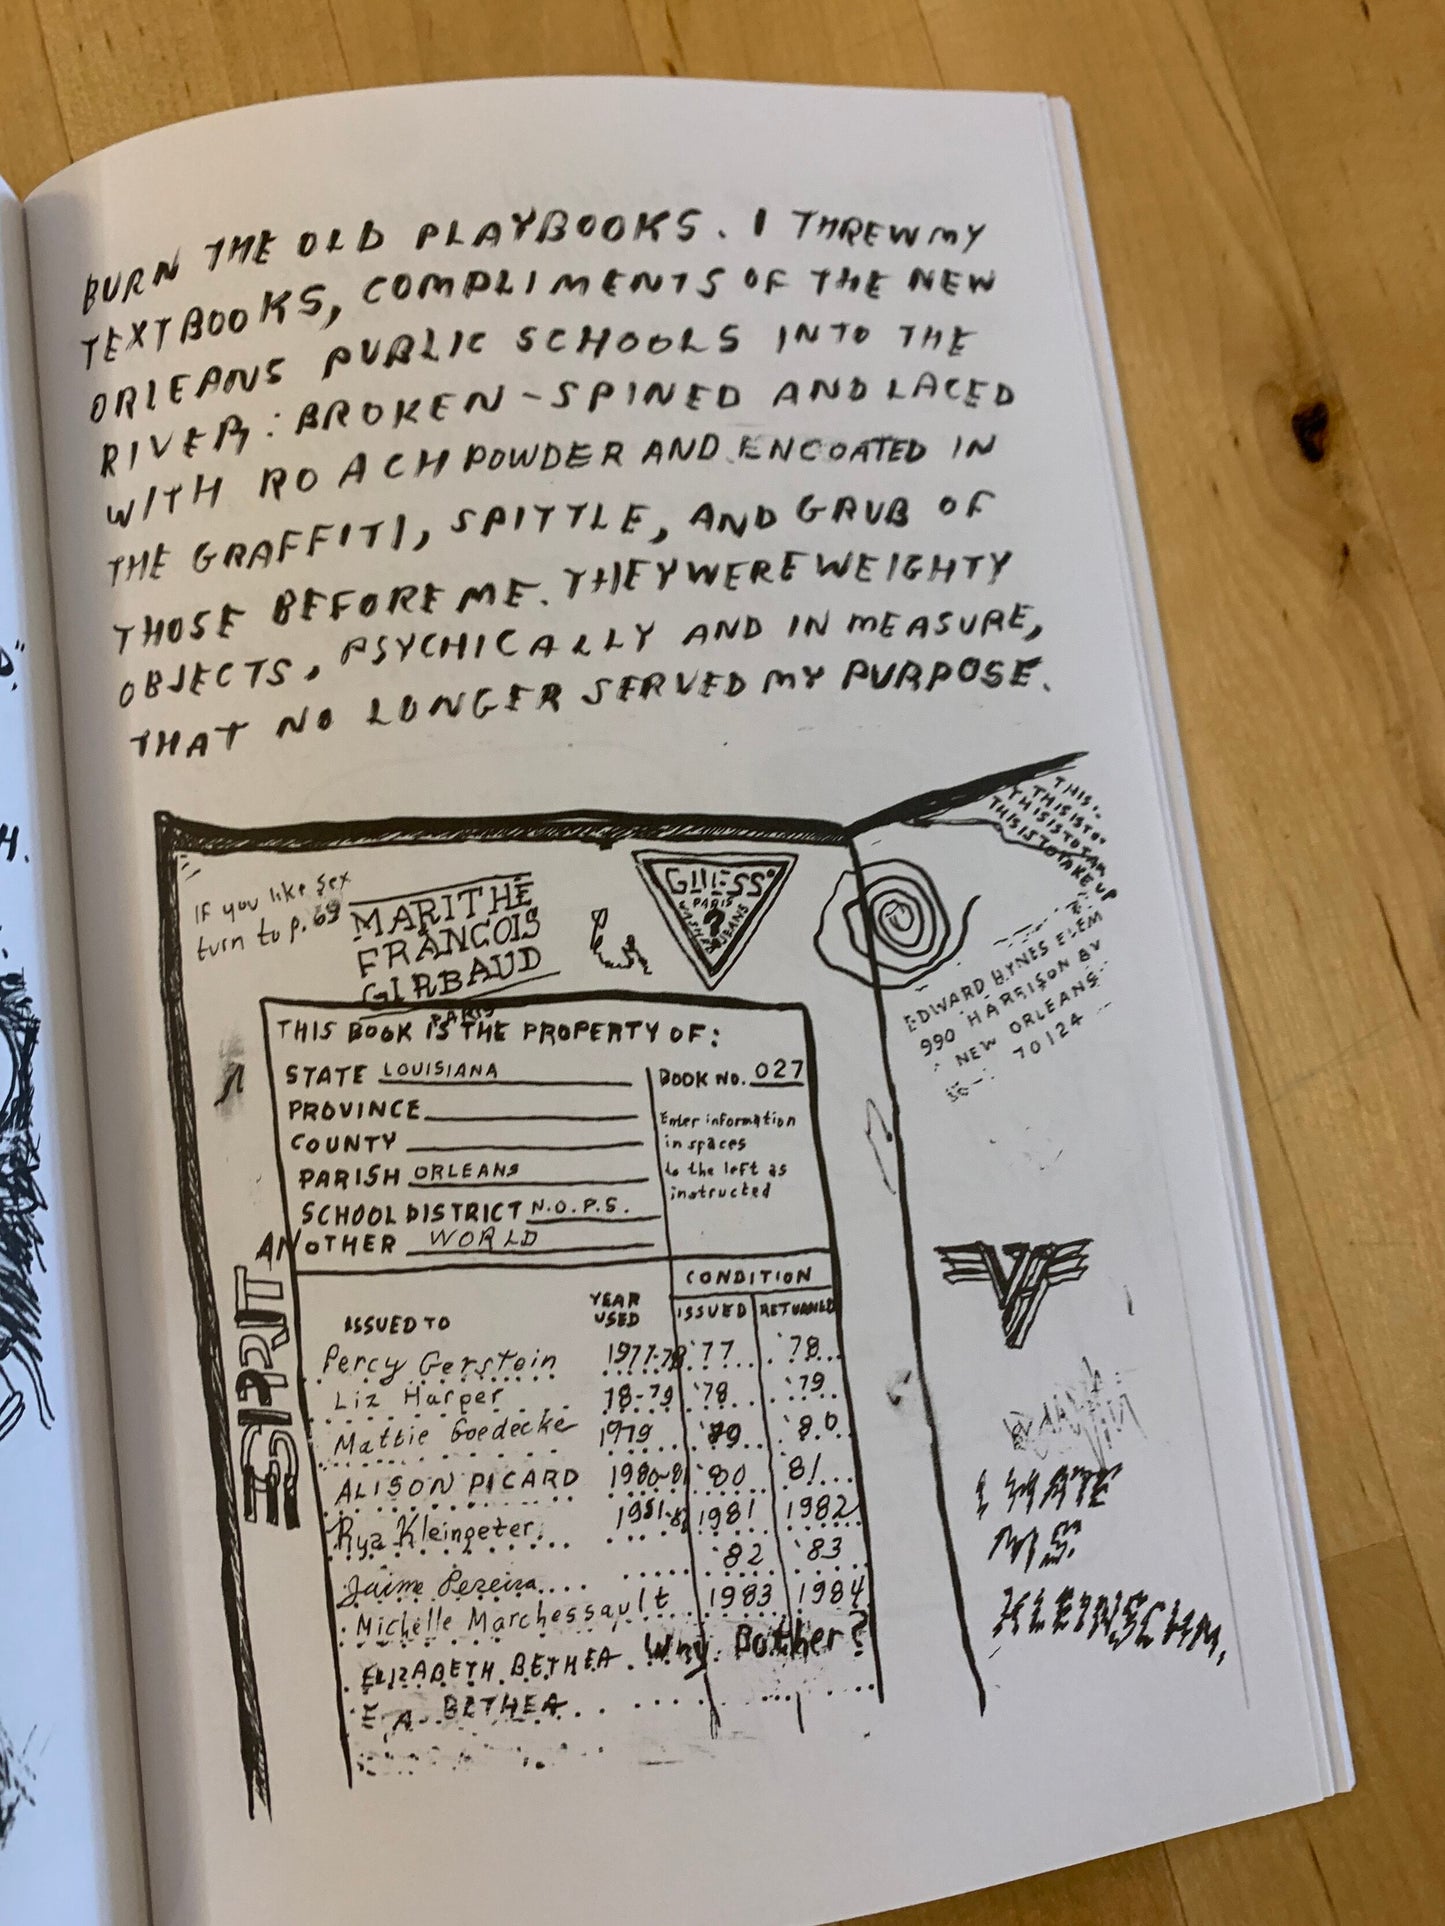 BURN THE OLD PLAYBOOKS. I THREW MY
TEXTBOOKS, COMPLIMENTS OF THE NEW
ORLEANS PUBLIC SCHOOLS INTO THE
RIVER: BROKEN-SPINED AND LACED
WITH ROACH POWDER AND ENCOATED IN
THE GRAFFITI, SPITTLE, AND GRUB OF
THOSE BEFORE ME. THEY WERE WEIGHTY
OBJECTS, PSYCHICALLY AND IN MEASURE,
THAT NO LONGER SERVED MY PURPOSE.
H.
IF you like Sex
turn to p. 69
MARITHÉ
FRANCOIS
GIRBAUD
PARIS
GUESS?
PARIS
?
JEANS
THIS.
THIS IS TO
THIS IS TO TAK
THIS IS TO TAKE UP
EDWARD HYNES ELEM
990 HARRISON AV
NEW ORLEANS
70124
THIS BOOK IS THE PROPERTY OF:
STATE LOUISIANA
BOOK NO. 027
PROVINCE
COUNTY
PARISH ORLEANS
SCHOOL DISTRICT N.O.P.S.
ANOTHER WORLD
Enter information
in spaces
to the left as
instructed
ESPRIT
CONDITION
ISSUED TO YEAR USED ISSUED RETURNED
Percy Gerstein 1977-78 '77 '78
Liz Harper 78-79 '78 '79
Mattie Goedecke 1979 '80
ALISON PICARD 1980-81 '80 81
Rya Kleinpeter 1981-82 1981 1982
Jaime Pereira '82 '83
Michelle Marchessault 1983 1984
ELIZABETH BETHEA Why Bother?
E. A. BETHEA
VH
I HATE
MS.
KLEINSCHM.